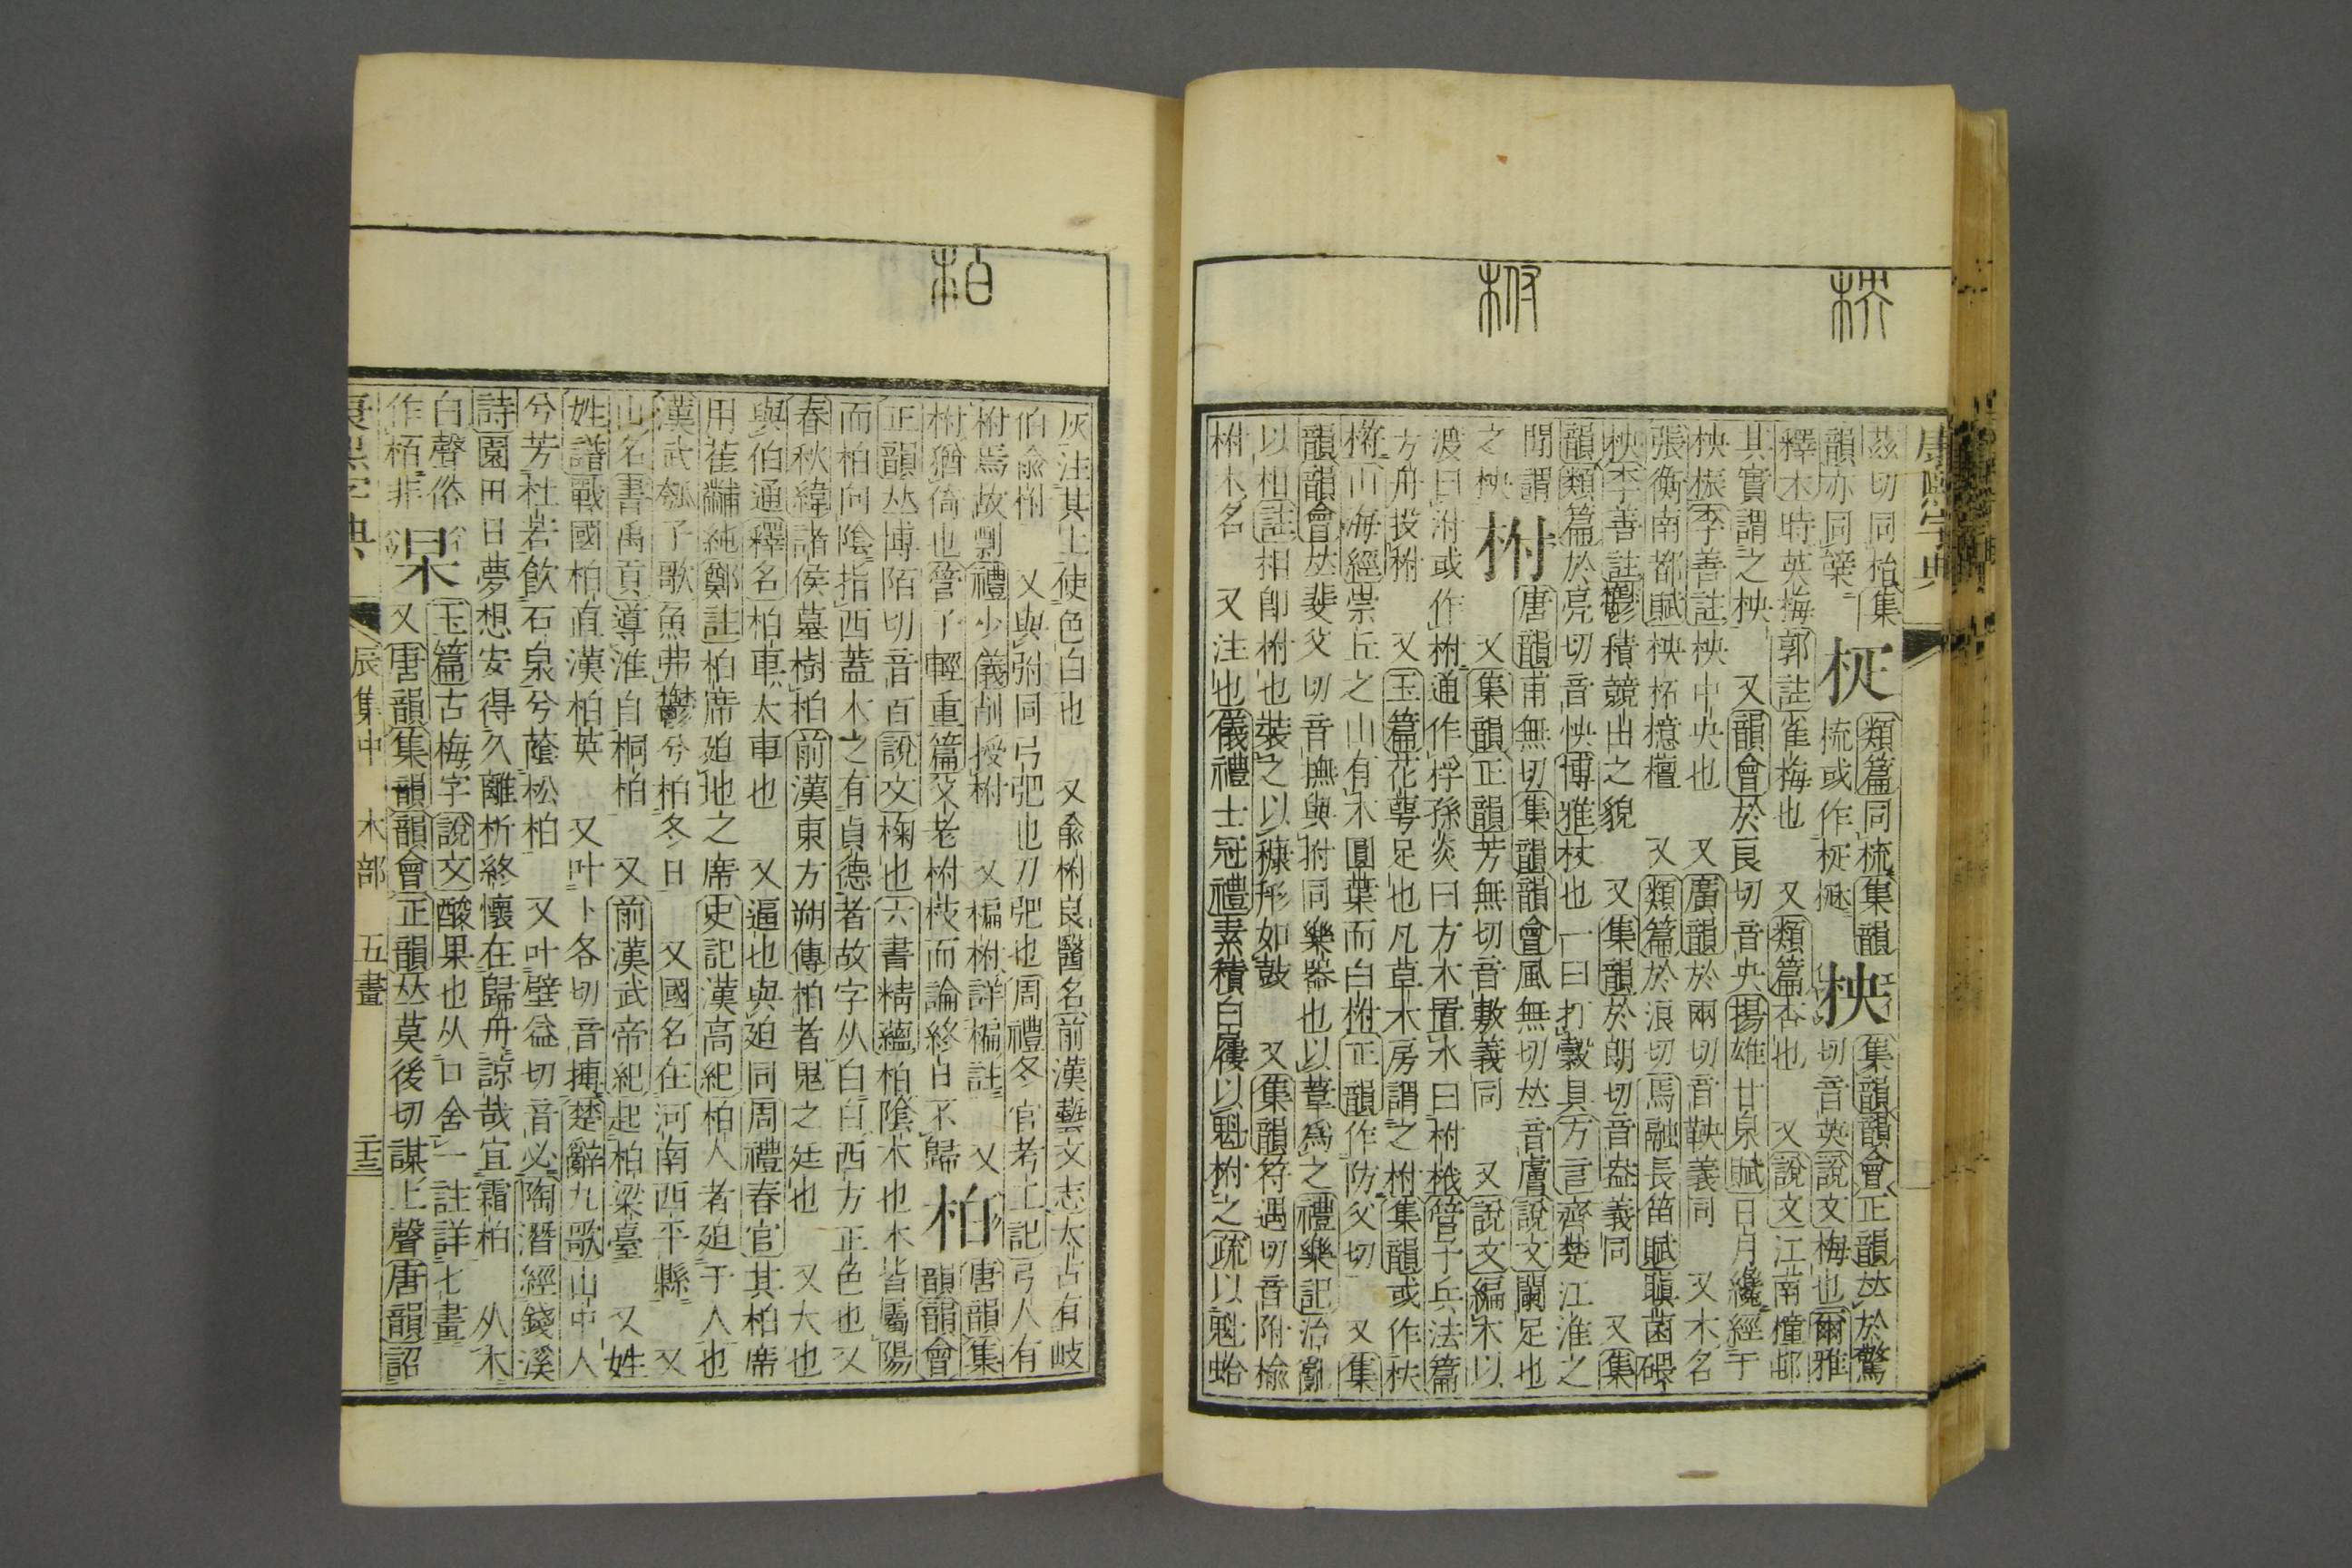 柍
柎
康熙字典
茲切同枱集
韻亦同𦔮
類篇同梳集韻
梳或作
柍
集韻韻會正韻𠀤於驚
切音英說文梅也爾雅
釋木時英梅郭註雀梅也 又類篇杏也 又說文江南橦邨
其實謂之柍 又韻會於良切音央揚雄甘泉賦日月纔經于
柍桭李善註柍中央也 又廣韻於兩切音鞅義同 又木名
張衡南都賦柍柘檍檀 又類篇於浪切馬融長笛賦 磒
柍李善註鬱積競出之貌 又集韻於朗切音坱義同 又集
韻類篇於亮切音怏博雅杖也一曰打穀具方言齊楚江淮之
閒謂
之柍
柎
唐韻甫無切集韻韻會風無切𠀤音膚說文闌足也
又集韻正韻芳無切音敷義同 又說文編木以
渡曰泭或作柎通作桴孫炎曰方木置水曰柎栰管子兵法篇
方舟投柎 又玉篇花萼足也凡草木房謂之柎集韻或作
山海經崇丘之山有木圓葉而白柎正韻作防父切 又集
韻韻會𠀤斐父切音撫與拊同樂器也以葦爲之禮樂記治亂
以相註相卽柎也裝之以穅形如鼓 又集韻符遇切音附榆
柎木名 又注也儀禮士冠禮素積白屨以魁柎之疏以魁蛤
柏
灰注其上使色白也 又兪柎良醫名前漢藝文志太古有岐
伯兪柎 又與弣同弓弝也刀弝也周禮冬官考工記弓人有
柎焉故剽禮少儀削授柎 又楄柎詳楄註 又
柎猶倚也管子輕重篇父老柎枝而論終日不歸
柏
唐韻集
韻韻會
正韻𠀤博陌切音百說文椈也六書精蘊柏陰木也木皆屬陽
而柏向陰指西蓋木之有貞德者故字从白白西方正色也又
春秋緯諸侯墓樹柏前漢東方朔傳柏者鬼之廷也 又大也
與伯通釋名柏車大車也 又逼也與迫同周禮春官其柏席
用萑黼純鄭註柏席迫地之席史記漢高紀柏人者迫于人也
漢武瓠子歌魚弗鬱兮柏冬日 又國名在河南西平縣 又
山名書禹貢導淮自桐柏 又前漢武帝紀起柏梁臺 又姓
姓譜戰國柏直漢柏英 又叶卜各切音搏楚辭九歌山中人
兮芳杜若飮石泉兮蔭松柏 又叶壁益切音必陶潛經錢溪
詩園田日夢想安得久離析終懷在歸舟諒哉宜霜柏 从木
白聲俗
作栢非
呆
玉篇古梅字說文酸果也从口舍一註詳七畫
又唐韻集韻韻會正韻𠀤莫後切謀上聲唐韻詔
康熙字典 辰集中 木部 五畫 二十三